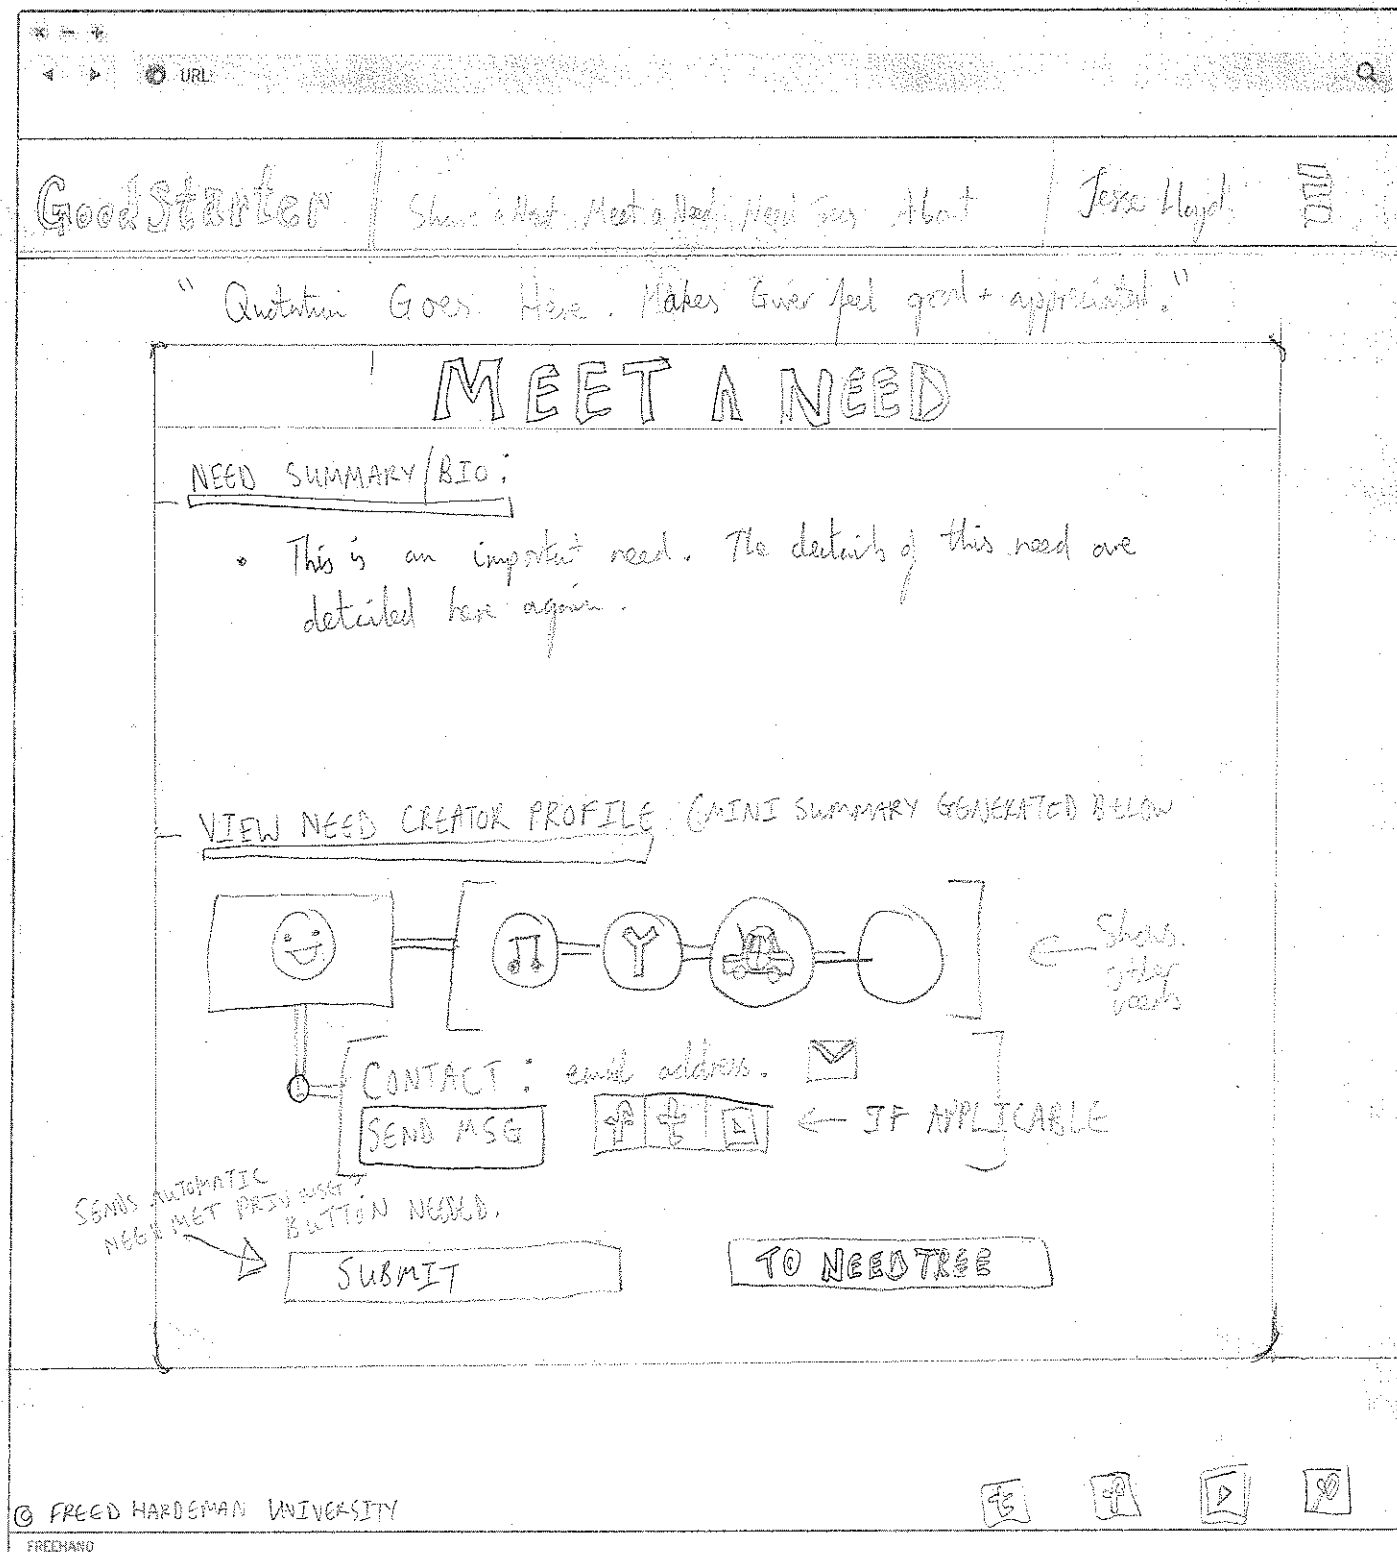 URL:
GoodStarter Share a Need Meet a Need Need Trees About Jesse Lloyd
" Quotation Goes Here. Makes Giver feel good + appreciated."
MEET A NEED
NEED SUMMARY/BIO:
• This is an important need. The details of this need are
detailed here again.
VIEW NEED CREATOR PROFILE (MINI SUMMARY GENERATED BELOW
← Shows
other
needs
CONTACT: email address.
SEND MSG
f t ← IF APPLICABLE
SENDS AUTOMATIC
NEED MET PRIV MSG"
BUTTON NEEDED.
SUBMIT
TO NEEDTREE
© FREED HARDEMAN UNIVERSITY
t f
FREEHAND